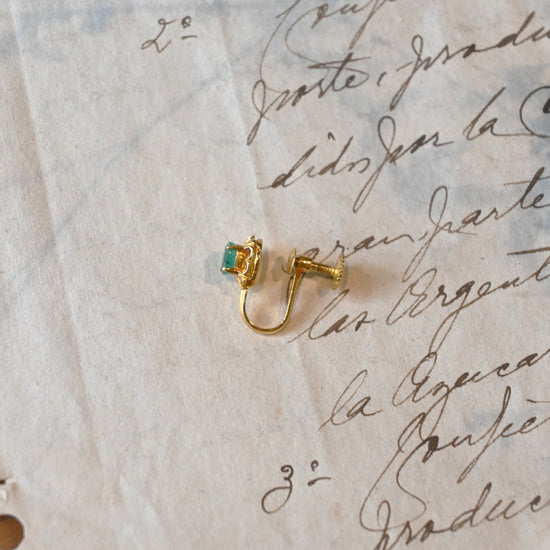 2º
porte, produ
didos por la
gran parte
las Argent
la Azuca
3º-
Confit
produc